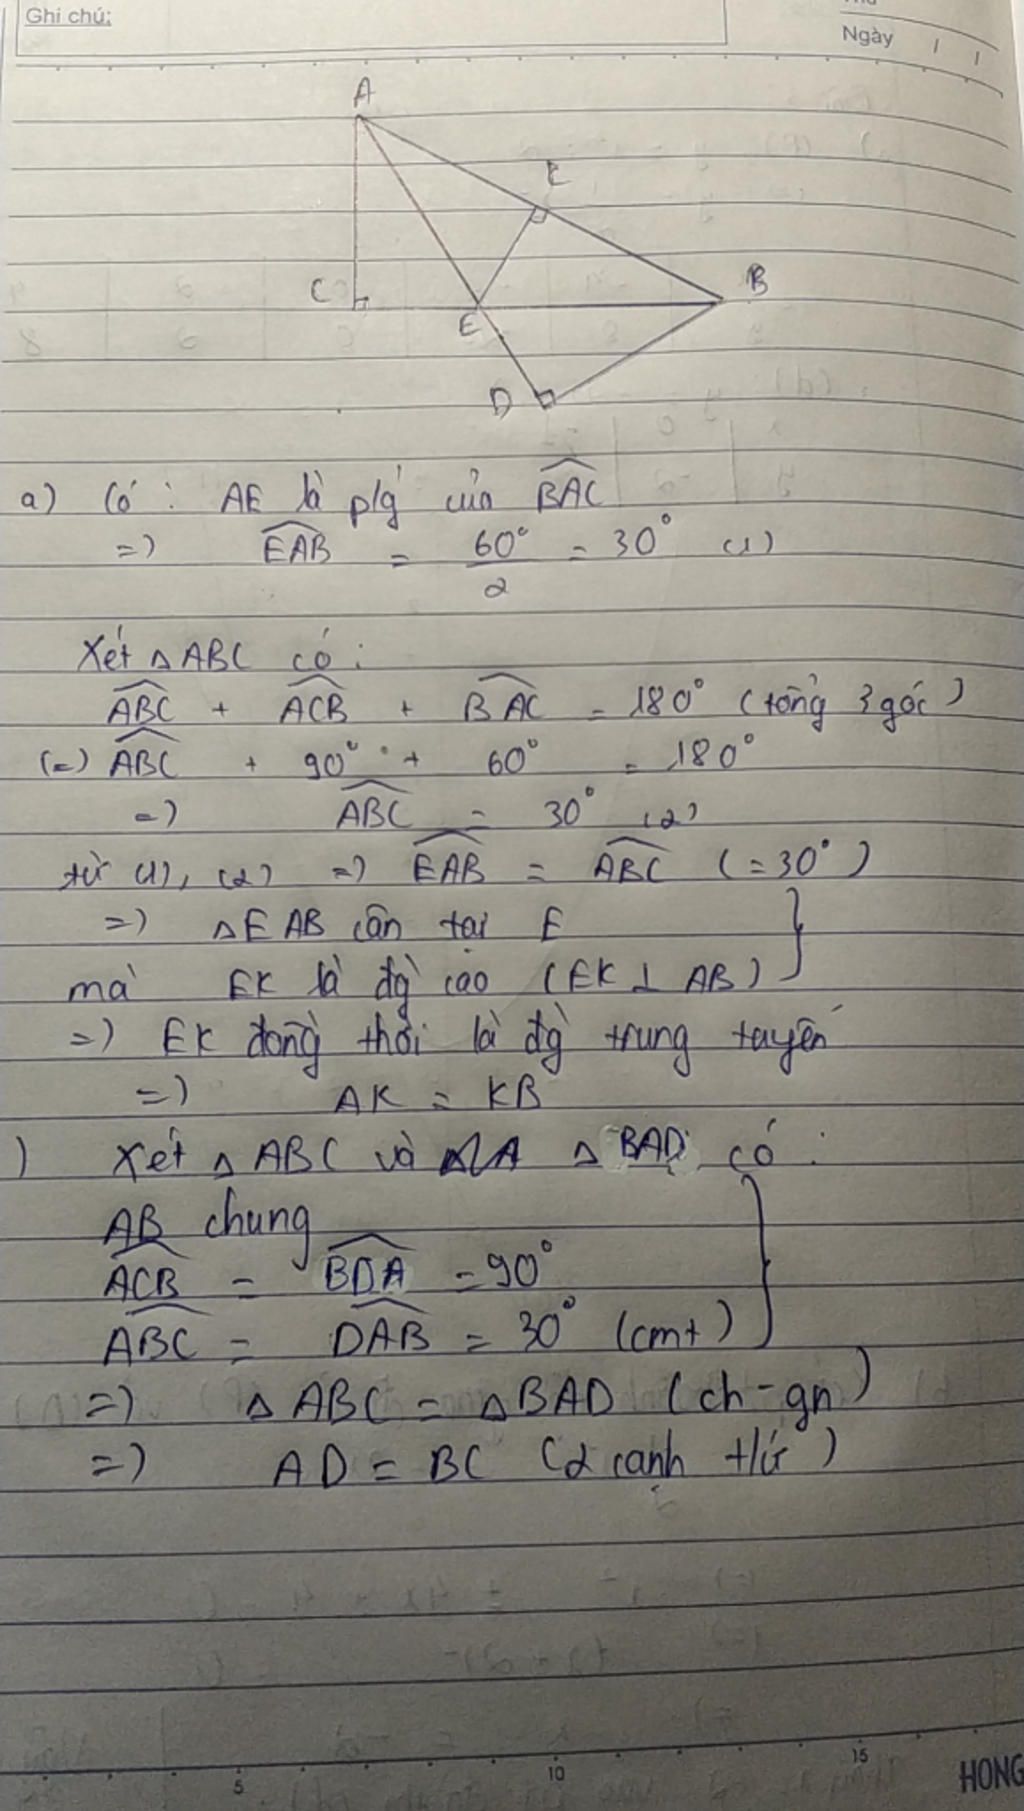 Ghi chú:
Ngày / /
A
K
C
E
B
D
a) Có : AE là p/g của BAC
=> EAB = 60° / 2 = 30° (1)
Xét △ABC có :
ABC + ACB + BAC = 180° (tổng 3 góc)
(=) ABC + 90° + 60° = 180°
=> ABC = 30° (2)
từ (1), (2) => EAB = ABC (=30°)
=> △EAB cân tại E
mà EK là đg cao (EK ⊥ AB)
=> EK đồng thời là đg trung tuyến
=> AK = KB
) Xét △ABC và △BAD có :
AB chung
ACB = BDA = 90°
ABC = DAB = 30° (cmt)
=> △ABC = △BAD (ch-gn)
=> AD = BC (2 cạnh t/ứ)
5 10 15 HONG